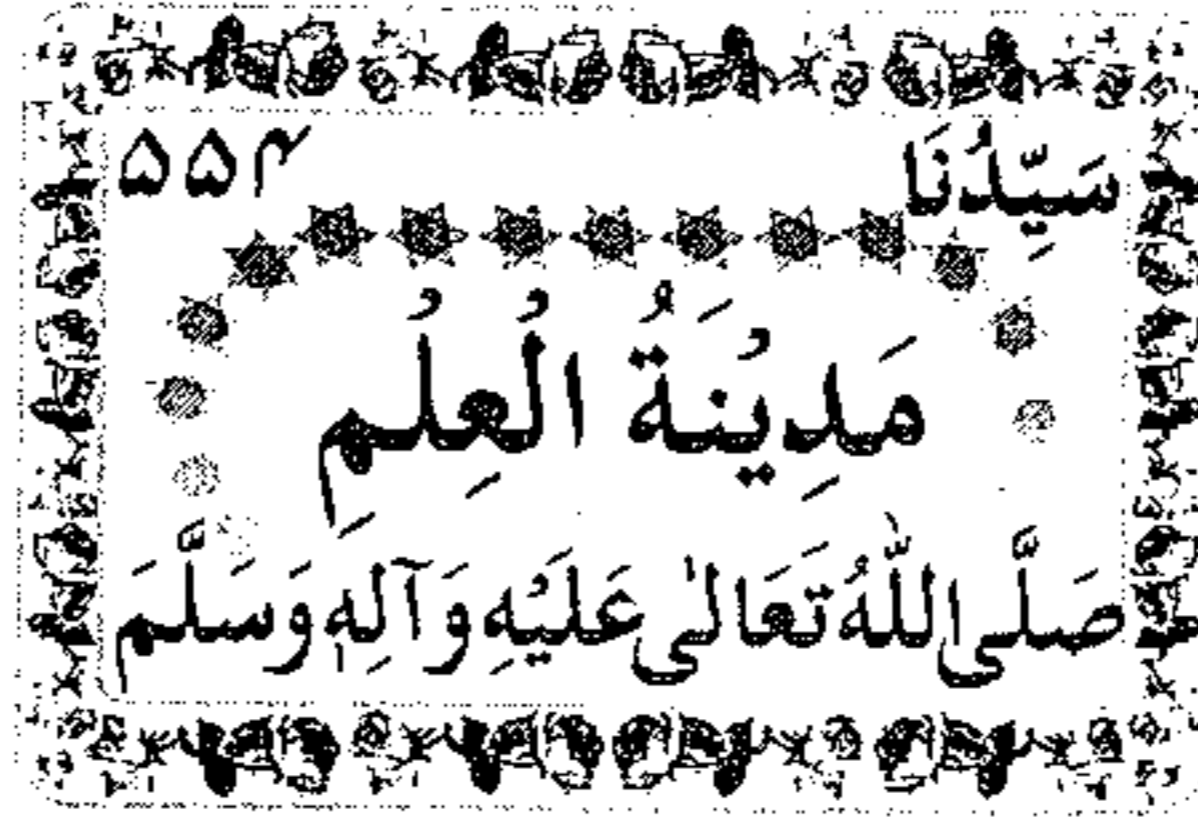 سَيِّدُنَا ۵۵۴
مَدِيْنَةُ الْعِلْمِ
صَلَّى اللّٰهُ تَعَالٰى عَلَيْهِ وَآلِهٖ وَسَلَّمَ